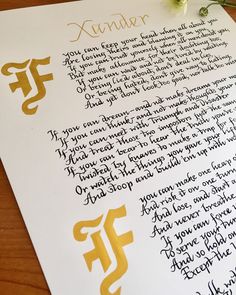 Xander
IF
you can keep your head when all about you
Are losing theirs and blaming it on you,
If you can trust yourself when all men doubt you,
But make allowance for their doubting too;
If you can wait and not be tired by waiting,
Or being lied about, don't deal in lies,
Or being hated, don't give way to hating,
And yet don't look too good, nor talk too wise:
If you can dream – and not make dreams your
If you can think – and not make thoughts your
If you can meet with Triumph and Disaster
And treat those two impostors just the same
If you can bear to hear the truth you've
Twisted by knaves to make a trap for
Or watch the things you gave your life
And stoop and build 'em up with
IF
you can make one heap of
And risk it on one turn
And lose, and start
And never breathe
If you can force
To serve your
And so hold on
Except the